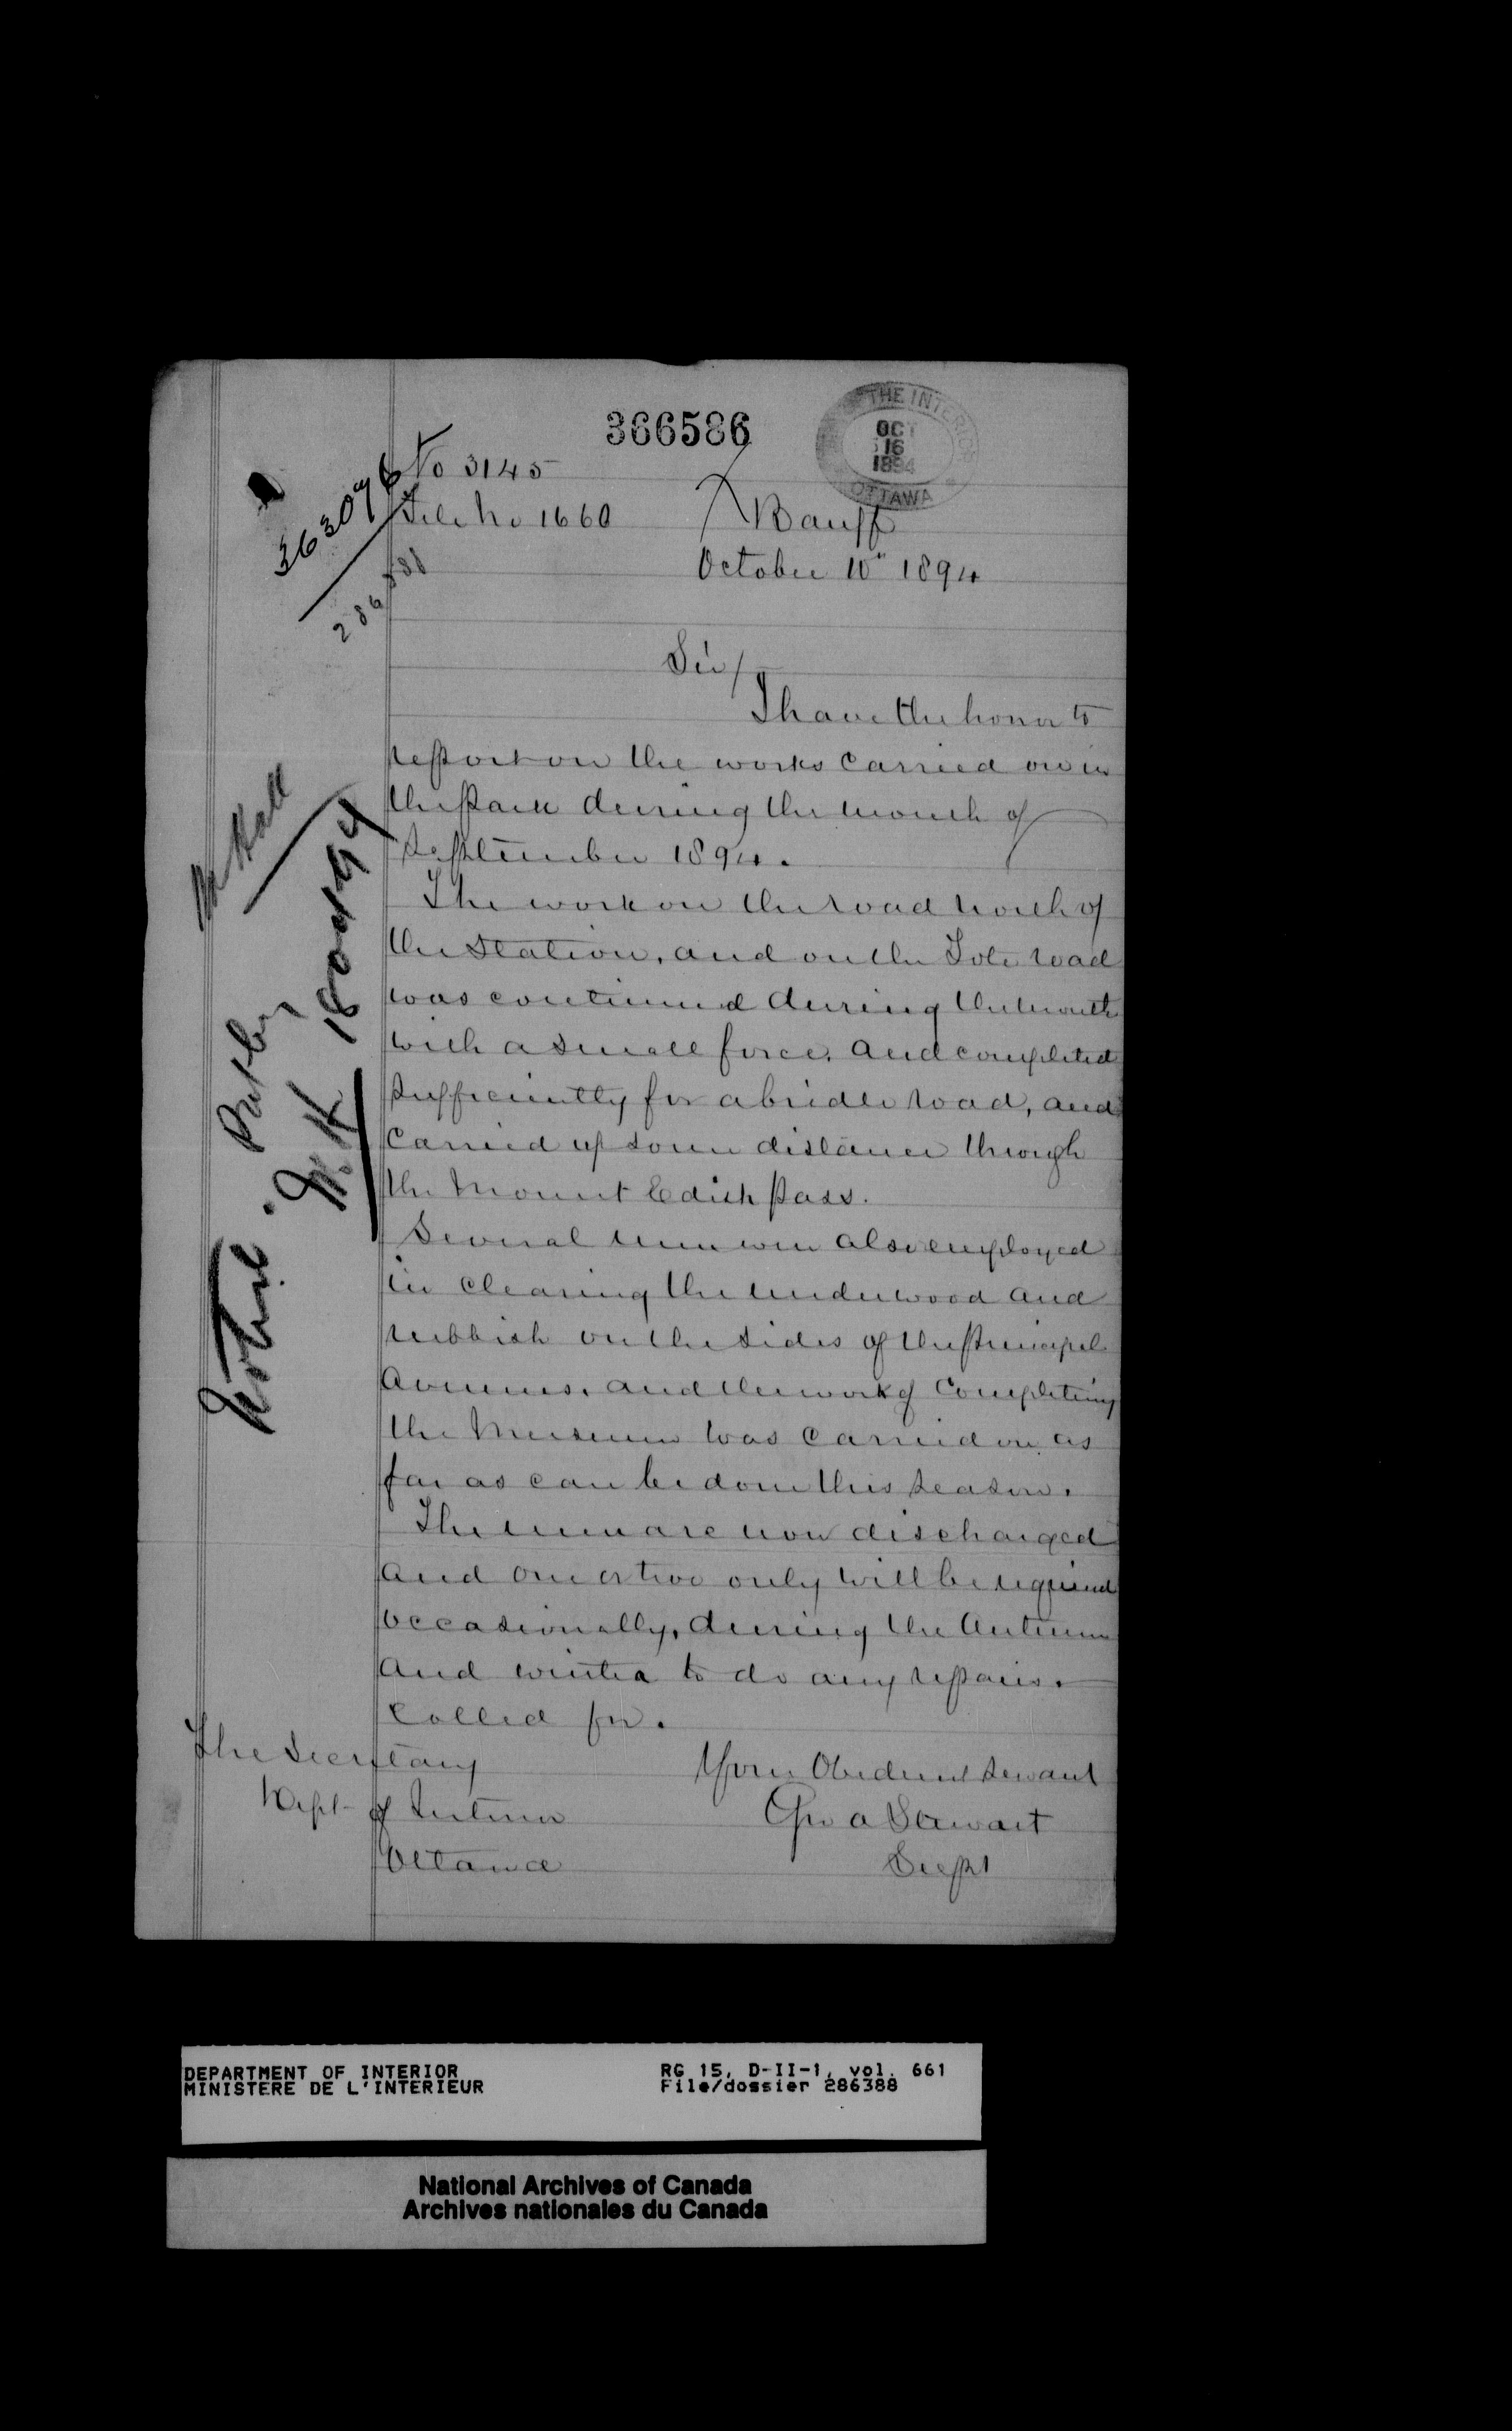 366586
THE INTERIOR
OCT
16
1894
OTTAWA
No 3145
363076
File No 1660
Banff
286388
October 10" 1894
Sir/
I have the honor to
report on the works carried on in
the Park during the month of
September 1894.
The work on the road north of
the Station, and on the Tote road
was continued during the month
with a small force, and completed
sufficiently for a bridle road, and
carried up some distance through
the Mount Edith Pass.
Several men were also employed
in clearing the underwood and
rubbish on the sides of the principal
Avenues, and the work of Completing
the Museum was carried on as
far as can be done this season.
The men are now discharged
and one or two only will be required
occasionally, during the Autumn
and winter to do any repairs.
called for.
Your Obedient Servant
Geo A Stewart
Supt
The Secretary
Dept of Interior
Ottawa
Mr Hall
18 Oct 94
DEPARTMENT OF INTERIOR
MINISTERE DE L'INTERIEUR
RG 15, D-II-1, vol. 661
File/dossier 286388
National Archives of Canada
Archives nationales du Canada